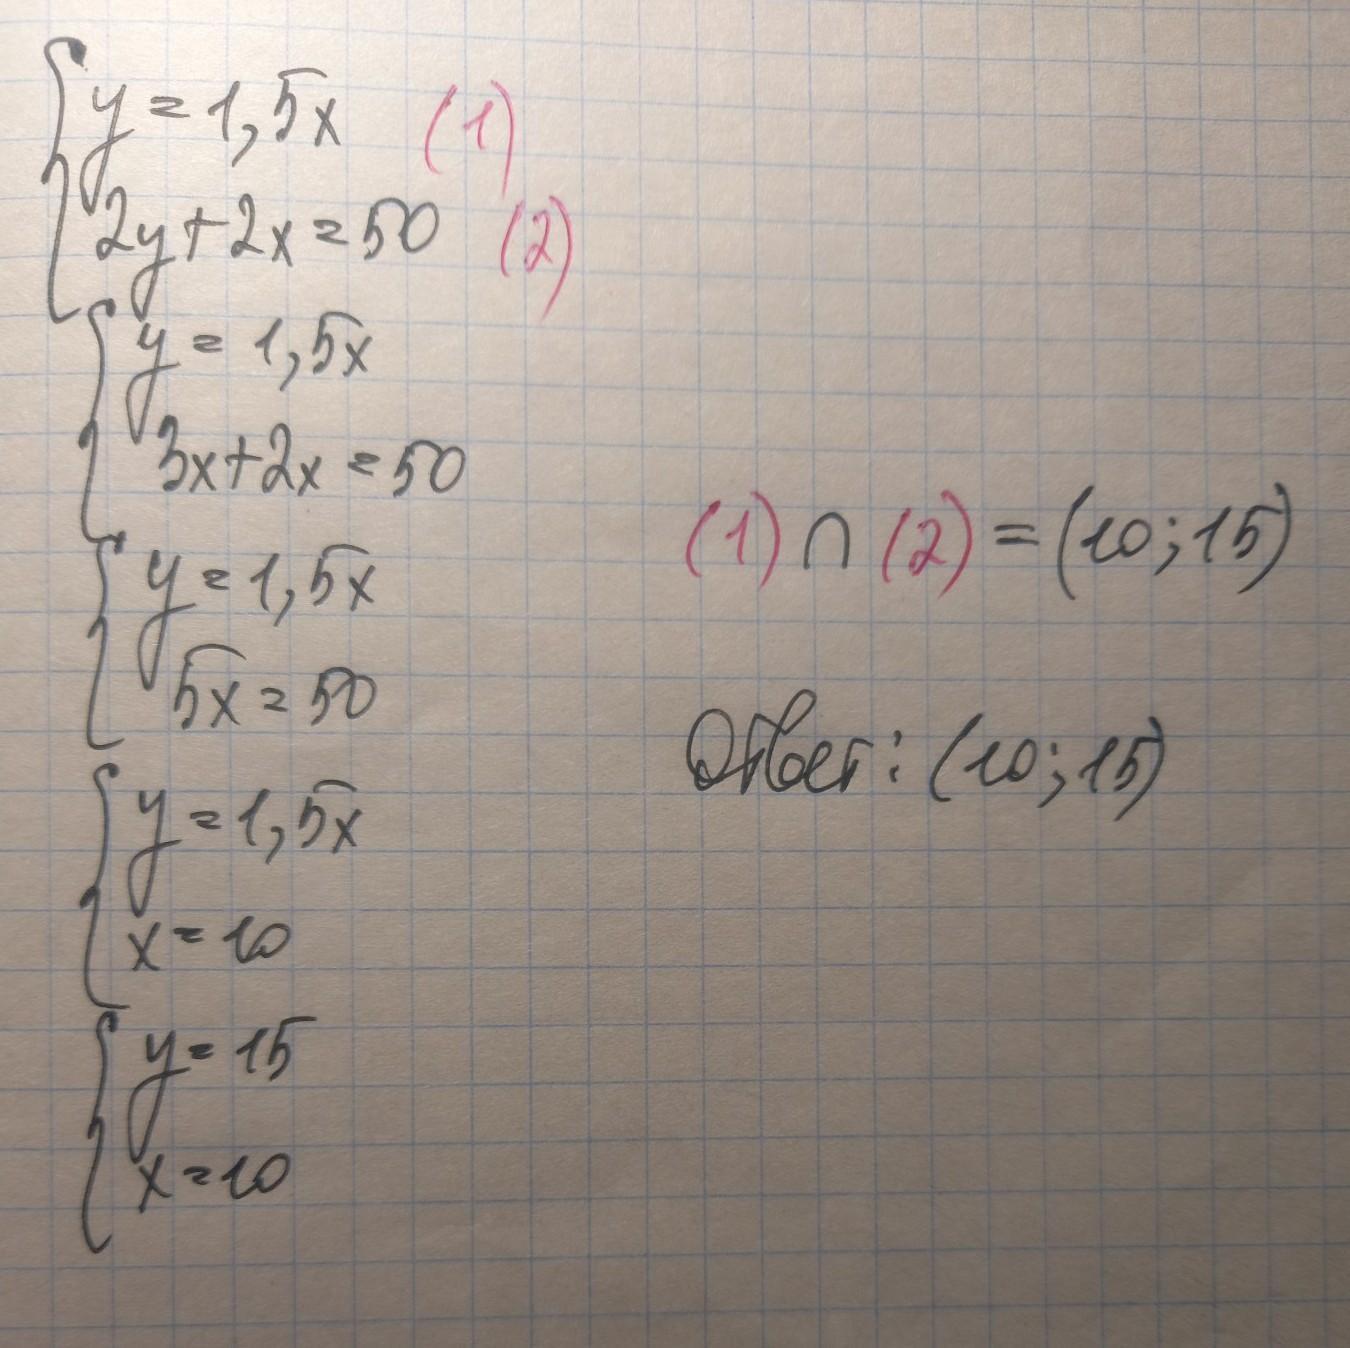 y = 1,5x (1)
2y+2x=50 (2)
y = 1,5x
3x+2x=50
y = 1,5x
5x = 50
y = 1,5x
x = 10
y = 15
x = 10
(1) ∩ (2) = (10; 15)
Ответ: (10; 15)